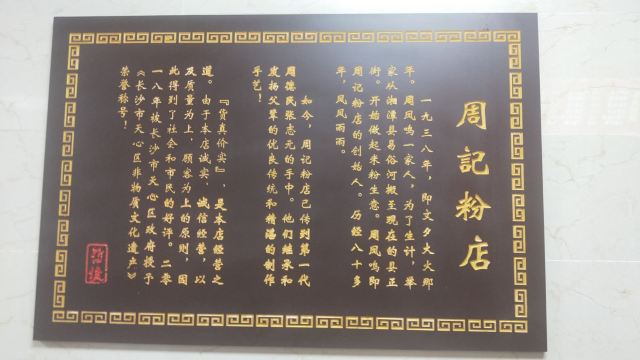 周記粉店
一九三八年，即文夕大火那
年。周凤鸣一家人，为了生计，举
家从湘潭县易俗河搬至现在的县正
街。开始做起米粉生意。周凤鸣即
周记粉店的创始人。历经八十多
年，风风雨雨。
如今，周记粉店已传到第一代
周德民张志元的手中。他们继承和
发扬父辈的优良传统和精湛的制作
手艺！
『货真价实』，是本店经营之
道。由于本店诚实、诚信经营，以
及质量为上、顾客为上的原则，因
此得到了社会和市民的好评。二零
一八年被长沙市天心区政府授予
《长沙市天心区非物质文化遗产》
荣誉称号！